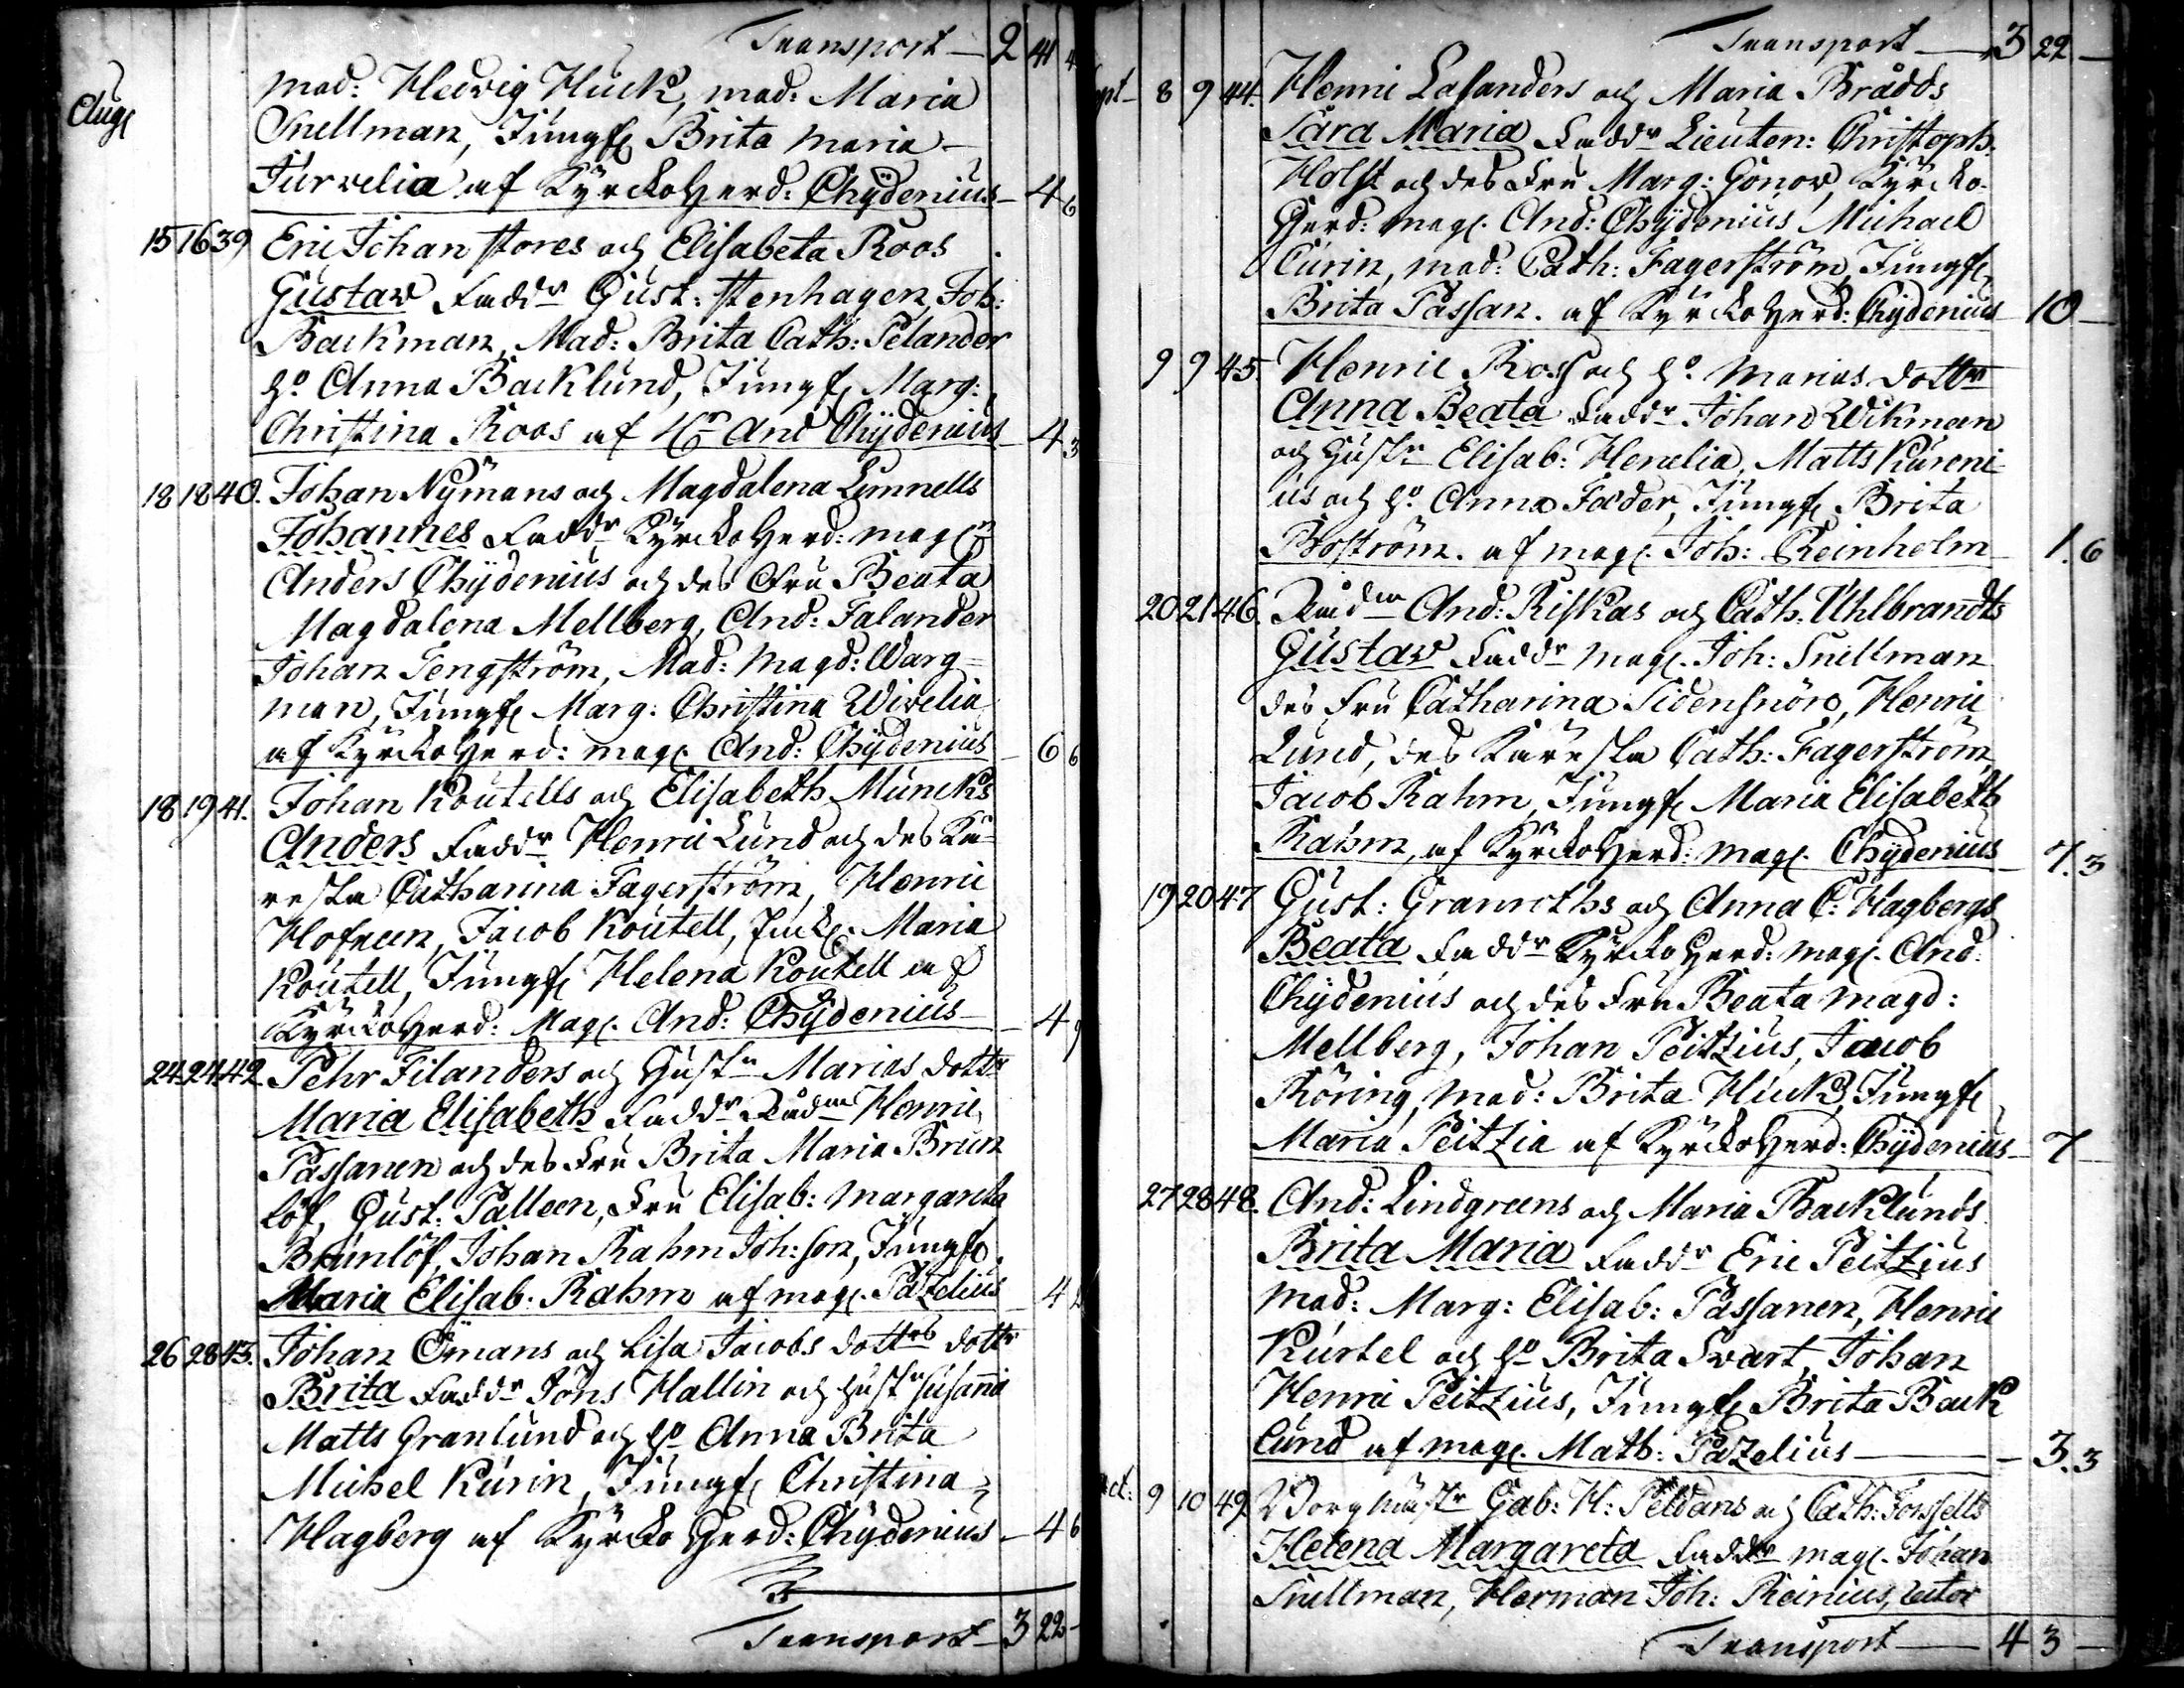 Transport — 2 41
Aug:
mad: Hedvig Huck, mad: Maria
Snellman, Jungf: Brita Maria
Jurvelia af KyrckoHerd: Chydenius — 4 6
15 16 39 Eric Johan stores och Elisabeta Roos
Gustav Faddr Gust: Stenhagen, Joh:
Backman, Mad: Brita Cath: Pelander
ho Anna Backlund, Jungf: Marg:
Christina Roos af Hr And Chydenius — 4 3
18 18 40. Johan Nymans och Magdalena Limnells
Johannes Faddr KyrckoHerd: mag:
Anders Chydenius och des Fru Beata
Magdalena Mellberg, And: Falander
Johan Tengström, Mad: Magd: Warg=
man, Jungf: Marg: Christina Wivelia
af KyrckoHerd: mag: And: Chydenius — 6 6
18 19 41. Johan Koutells och Elisabeth Muncks
Anders Faddr Henric Lund och des Kä=
resta Catharina Fagerström, Henric
Hofreen, Jacob Koutell, Maria
Koutell, Jungf: Helena Koutell af
KyrckoHerd: Mag: And: Chydenius — 4 9
24 24 42 Pehr Filanders och Hustr Marias dottr
Maria Elisabeth Faddr Rådm Henric
Passanen och des Fru Brita Maria Brun
löf, Gust: Palleen, Fru Elisab: Margareta
Brunlöf, Johan Rahm Joh:son, Jungf:
Maria Elisab: Rahm af mag: Pazelius — 4
26 28 43. Johan Ömans och Lisa Jacobs dottrs dottr
Brita Faddr Jöns Hallin och hustr Susanna
Matts Granlund och ho Anna Brita
Michel Kurin, Jungf: Christina
Hagberg af Kyrcko Herd: Chydenius — 4 6
Transport — 3 22 —
Transport — 3 22 —
Sept — 8 9 44. Henric Lasanders och Maria Brådds
Sara Maria Faddr Lieuten: Christoph.
Holst och des Fru Marg: Gonov, Kyrcko-
Herd: mag: And: Chydenius, Michael
Curin, mad: Cath: Fagerström, Jungf:
Brita Passan. af KyrckoHerd: Chydenius — 10 —
9 9 45. Henric Ross och ho Marias dottr
Anna Beata Faddr Johan Wikman
och Hustr Elisab: Henelia, Matts Kureni
us och ho Anna Foeder, Jungf: Brita
Boström. af mag: Joh: Reinholm — 1. 6
20 21 46. Rådm And: Riskas och Cath: Uhlbrandts
Gustav Faddr mag: Joh: Snellman
des Fru Catharina Sidensnöre, Henric
Lund, des Käresta Cath: Fagerström,
Jacob Rahm, Jungf: Maria Elisabeth
Rahm, af KyrckoHerd: mag: Chydenius — 7. 3
19 20 47 Gust: Granroths och Anna C: Hagbergs
Beata Faddr Kyrcko Herd: mag: And:
Chydenius och des Fru Beata Magd:
Mellberg, Johan Peitzius, Jacob
Röring, Mad: Brita Huck, Jungf:
Maria Peitzia af KyrckoHerd: Chydenius — 7 —
27 28 48. And: Lindgreens och Maria Backlunds
Brita Maria Faddr Eric Peitzius
Mad: Marg: Elisab: Passanen, Henric
Kurtel och ho Brita Svart, Johan
Henric Peitzius, Jungf: Brita Back
lund af mag: Math: Pazelius — 3. 3
Oct: 9 10 49. Borgmästr Gab: H: Peldans och Cath: Forssells
Helena Margareta Faddr mag: Johan
Snellman, Herman Joh: Reinius,
Transport — 4 3 —